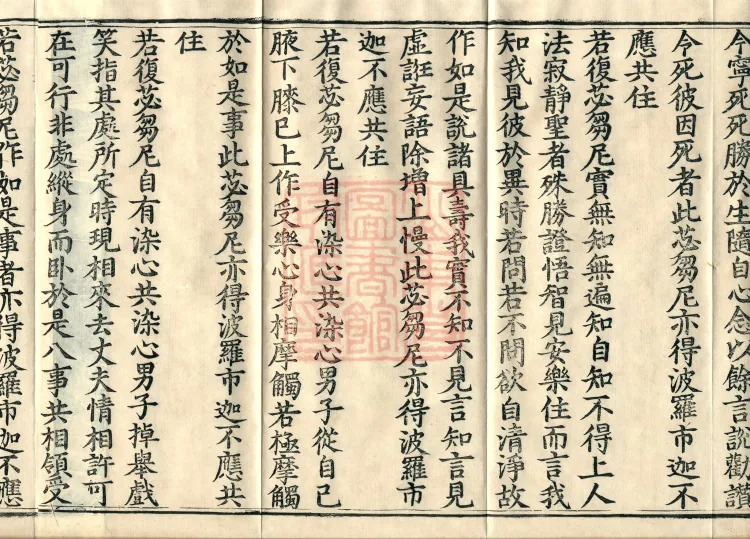 令寧死死勝於生隨自心念以餘言說勸讚
令死彼因死者此苾芻尼亦得波羅市迦不
應共住
若復苾芻尼實無知無遍知自知不得上人
法寂靜聖者殊勝證悟智見安樂住而言我
知我見彼於異時若問若不問欲自清淨故
作如是說諸具壽我實不知不見言知言見
虛誑妄語除增上慢此苾芻尼亦得波羅市
迦不應共住
若復苾芻尼自有染心共染心男子從自己
腋下膝已上作受樂心身相摩觸若極摩觸
於如是事此苾芻尼亦得波羅市迦不應共
住
若復苾芻尼自有染心共染心男子掉舉戲
笑指其處所定時現相來去丈夫情相許可
在可行非處縱身而臥於是八事共相領受
若苾芻尼作如是事者亦得波羅市迦不應